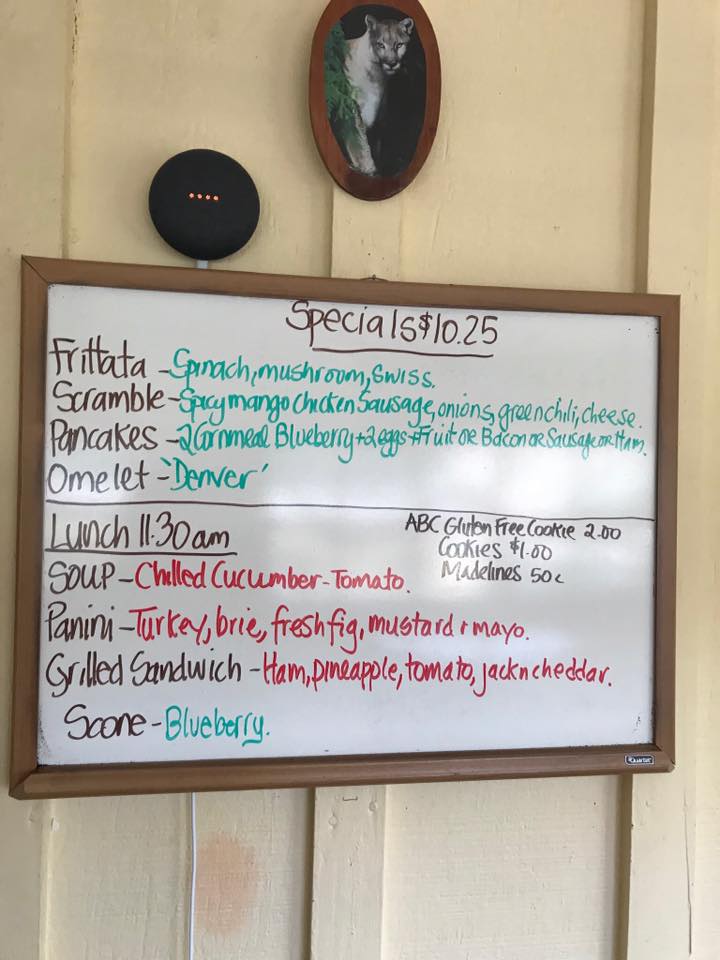 Specials $10.25
Frittata - Spinach, mushroom, Swiss.
Scramble - Spicy mango chicken Sausage, onions, green chili, cheese.
Pancakes - 2 Cornmeal Blueberry + 2 eggs + Fruit or Bacon or Sausage or Ham.
Omelet - 'Denver'
Lunch 11.30am
ABC Gluten Free Cookie 2.00
Cookies $1.00
Madelines 50c
SOUP - Chilled Cucumber-Tomato.
Panini - Turkey, brie, fresh fig, mustard & mayo.
Grilled Sandwich - Ham, pineapple, tomato, jack n cheddar.
Scone - Blueberry.
Quartet